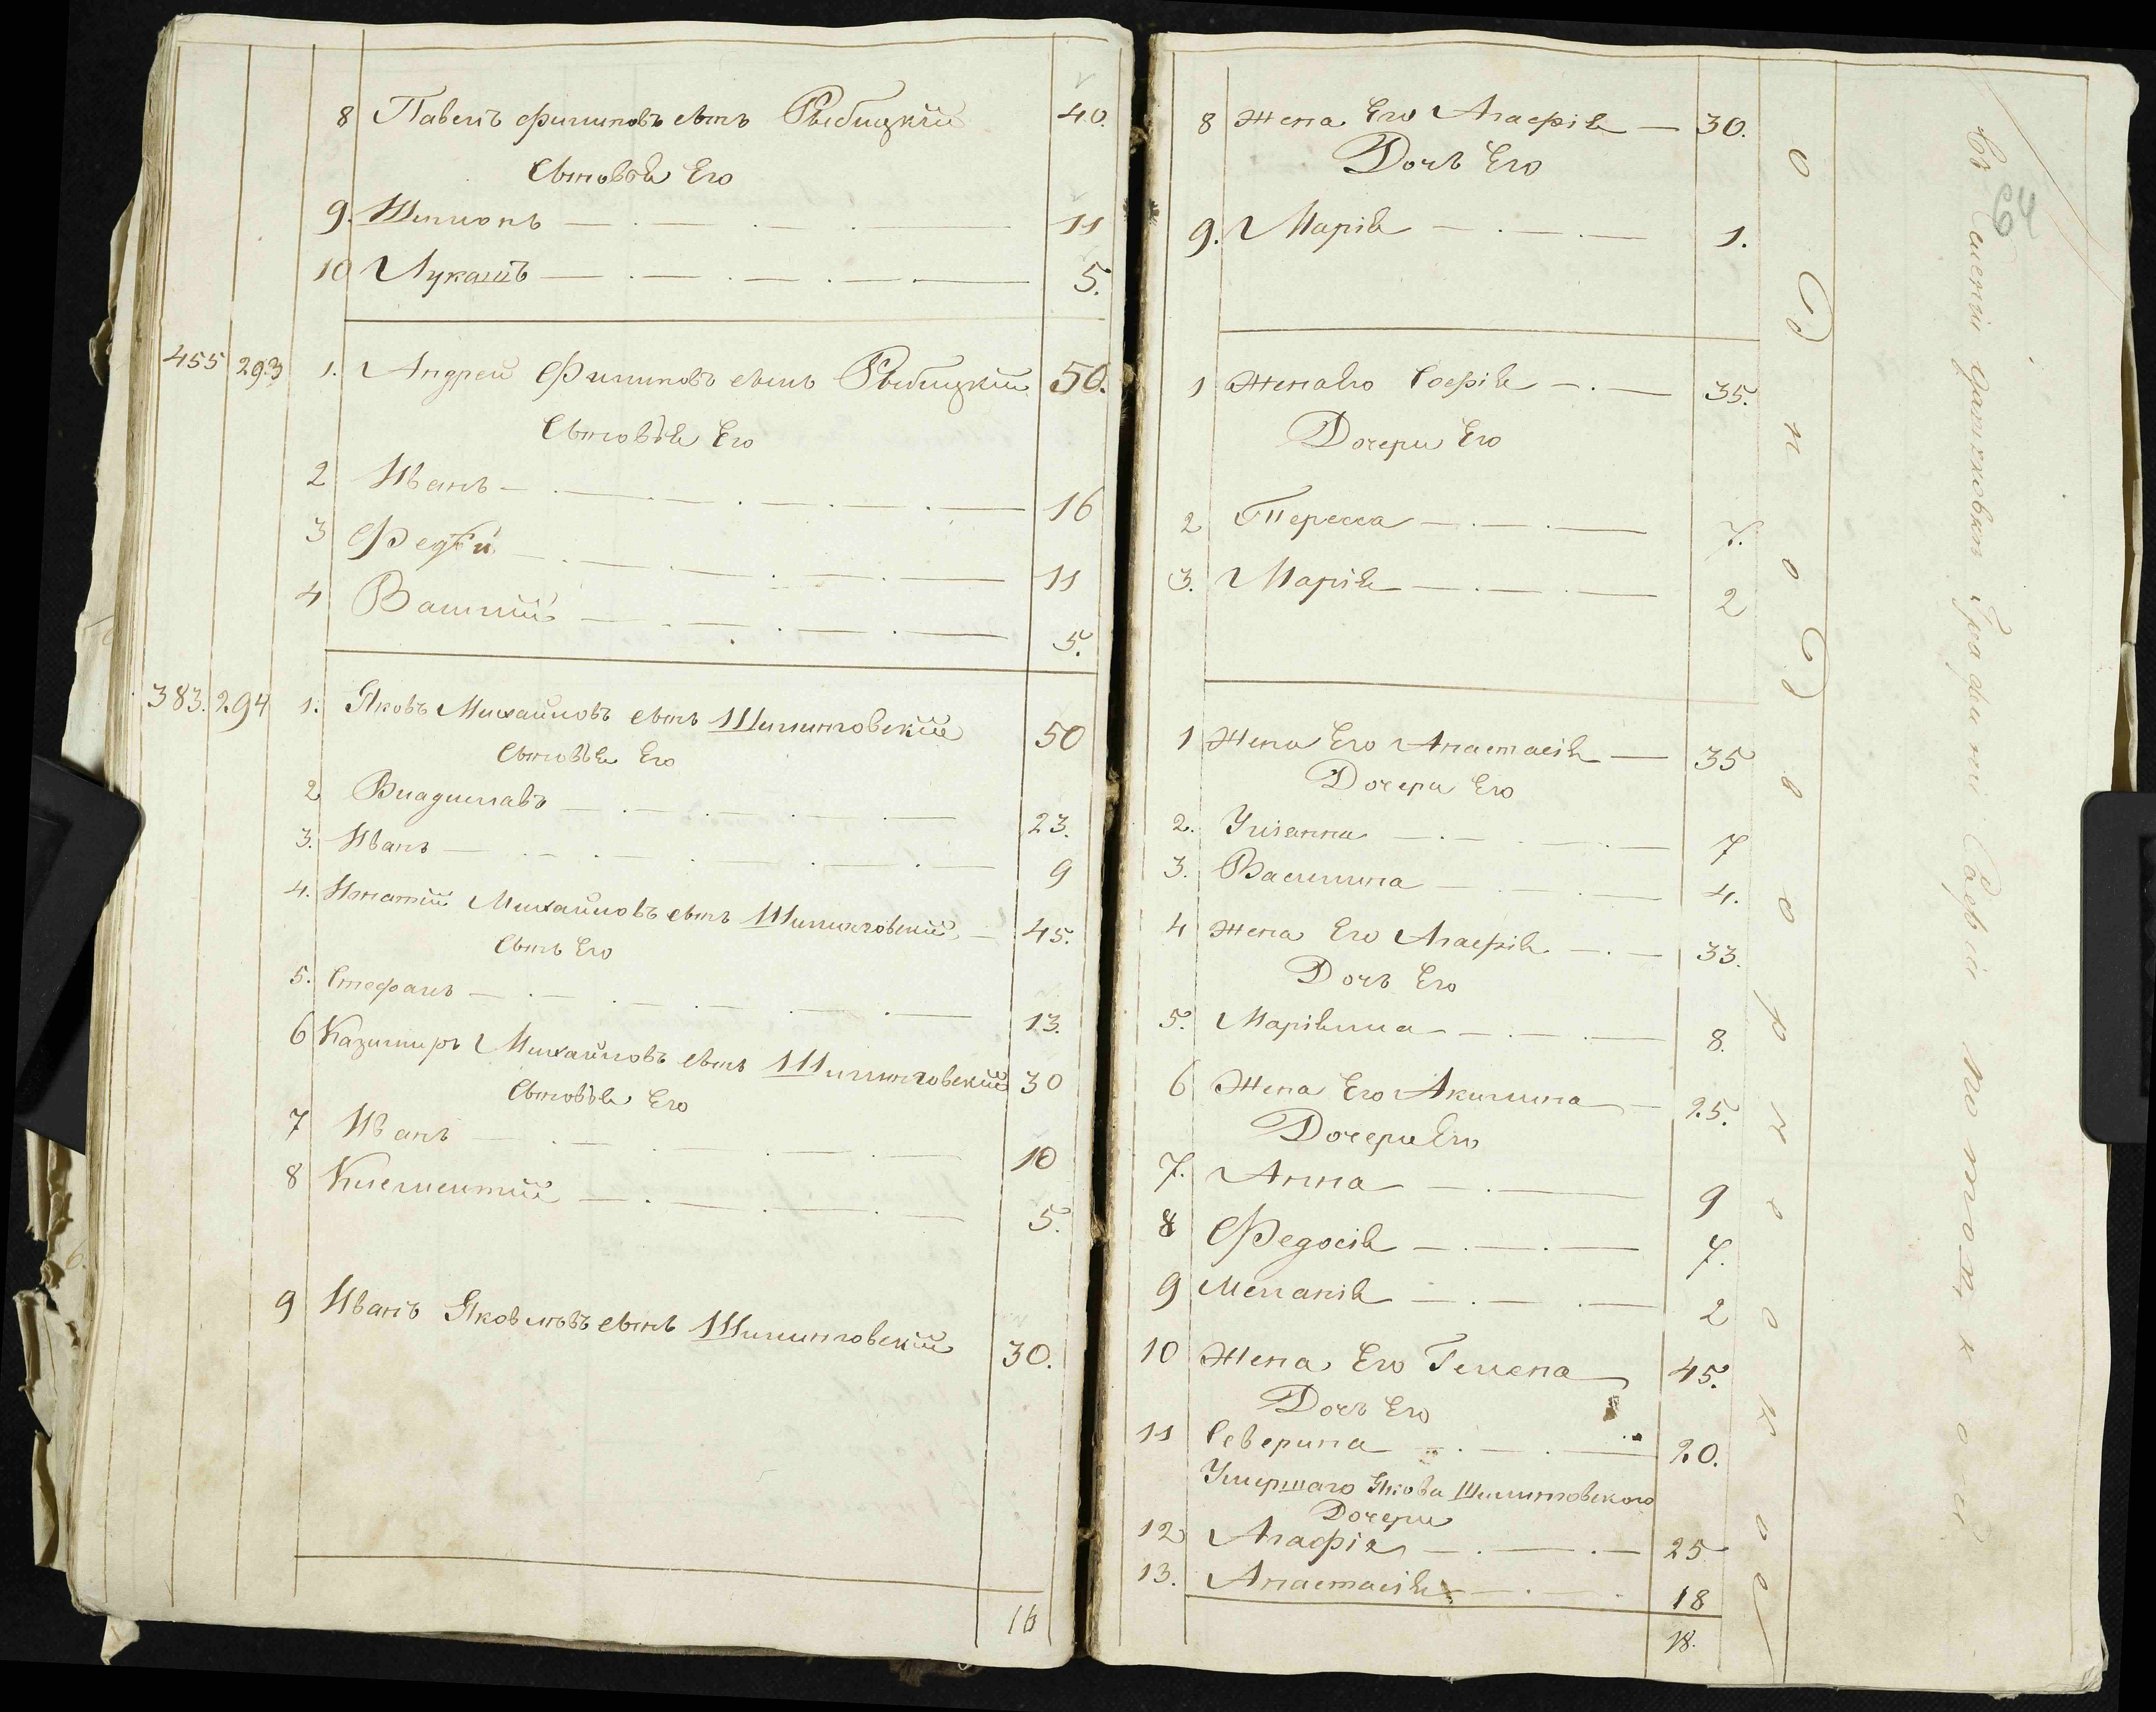 8 Павелъ Филиповъ сынъ Рыбицкій 40.
Сыновья Его
9. Шимонъ 11
10 Лукашъ 5.
455 293 1. Андрей Филиповъ сынъ Рыбицкій 50.
Сыновья Его
2 Иванъ 16
3 11
4 5.
383. 294 1. Яковъ Михайловъ сынъ Шилинговскій 50
Сыновья Его
2 Владиславъ 23.
3. Иванъ 9
4. Игнатій Михайловъ сынъ Шилинговскій 45.
Сынъ Его
5. Стефанъ 13.
6 Казимиръ Михайловъ сынъ Шилинговскій 30
Сыновья Его
7 Иванъ 10
8 Клементій 5.
9 Иванъ Яковлевъ сынъ Шилинговскій 30.
16
64
8 Жена Его Агафія 30.
Дочь Его
9. Марія 1.
1 Жена Его Софія 35.
Дочери Его
2 Тересса 7.
3. Марія 2
1 Жена Его Анастасія 35
Дочери Его
2. Уліянна 7
3. Василина 4.
4 Жена Его Агафія 33.
Дочь Его
5. Маріянна 8.
6 Жена Его Акилина 25.
Дочери Его
7. Анна 9
8 Федосія 7.
9 Меланія 2
10 Жена Его Гелена 45.
Дочь Его
11 Северина 20.
Умершаго Якова Шилинговского
Дочери
12 Агафія 25
13. Анастасія 18
18.
О Однодворческое